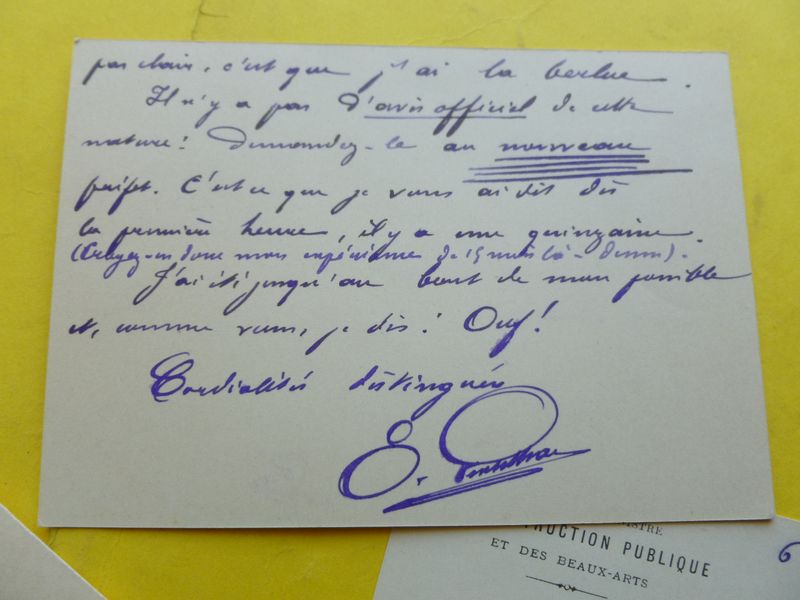 pas clair, c'est que j'ai la berlue.
Il n'y a pas d'avis officiel de cette
nature! Demandez-le au nouveau
préfet. C'est ce que je vous ai dit dès
la première heure, il y a une quinzaine.
(Croyez-en donc mon expérience de 15 mois là-dessus).
J'ai été jusqu'au bout de mon possible
et, comme vous, je dis: Ouf!
Cordialités distinguées
E.
ISTRE
RUCTION PUBLIQUE
ET DES BEAUX-ARTS